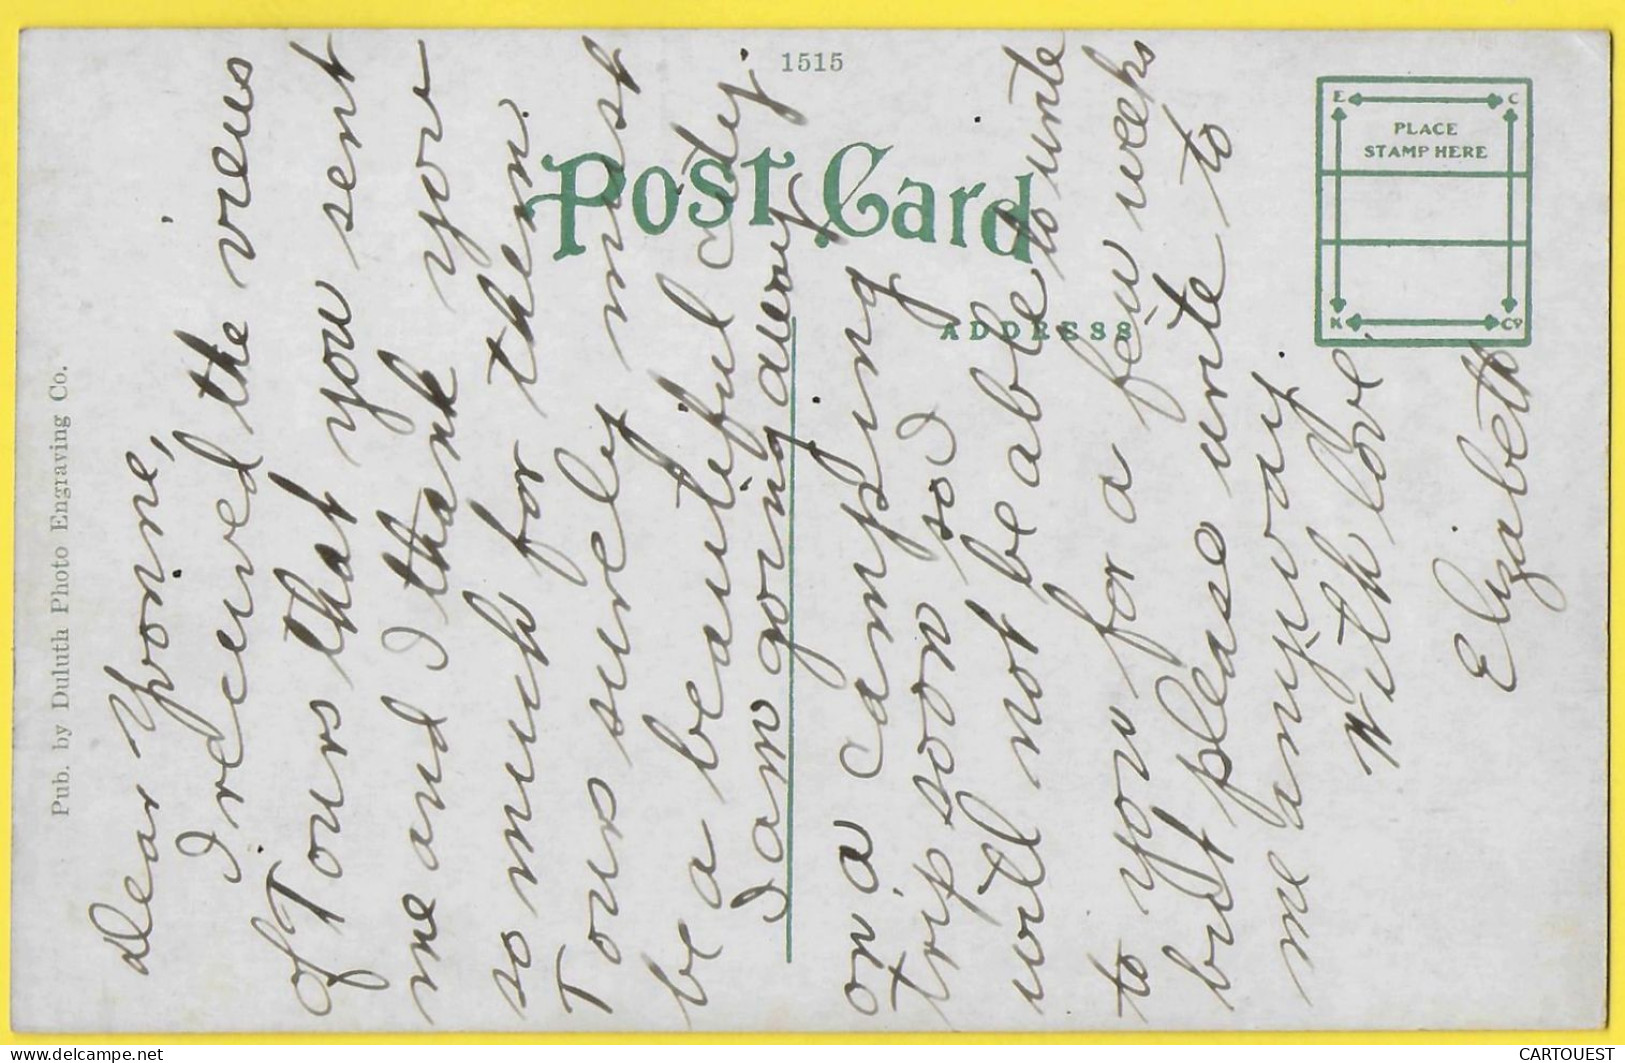 Pub. by Duluth Photo Engraving Co.
1515
Post Card
ADDRESS
E C
PLACE
STAMP HERE
K Co
Dear Yvonne,
I received the views
of Tours that you sent
me and I thank you
so much for them.
Tours surely must
be a beautiful city.
I am going away
on a camping
trip soon so I
will not be able to write
to you for a few weeks
but please write to
me anyway.
With love,
Elizabeth
CARTOUEST